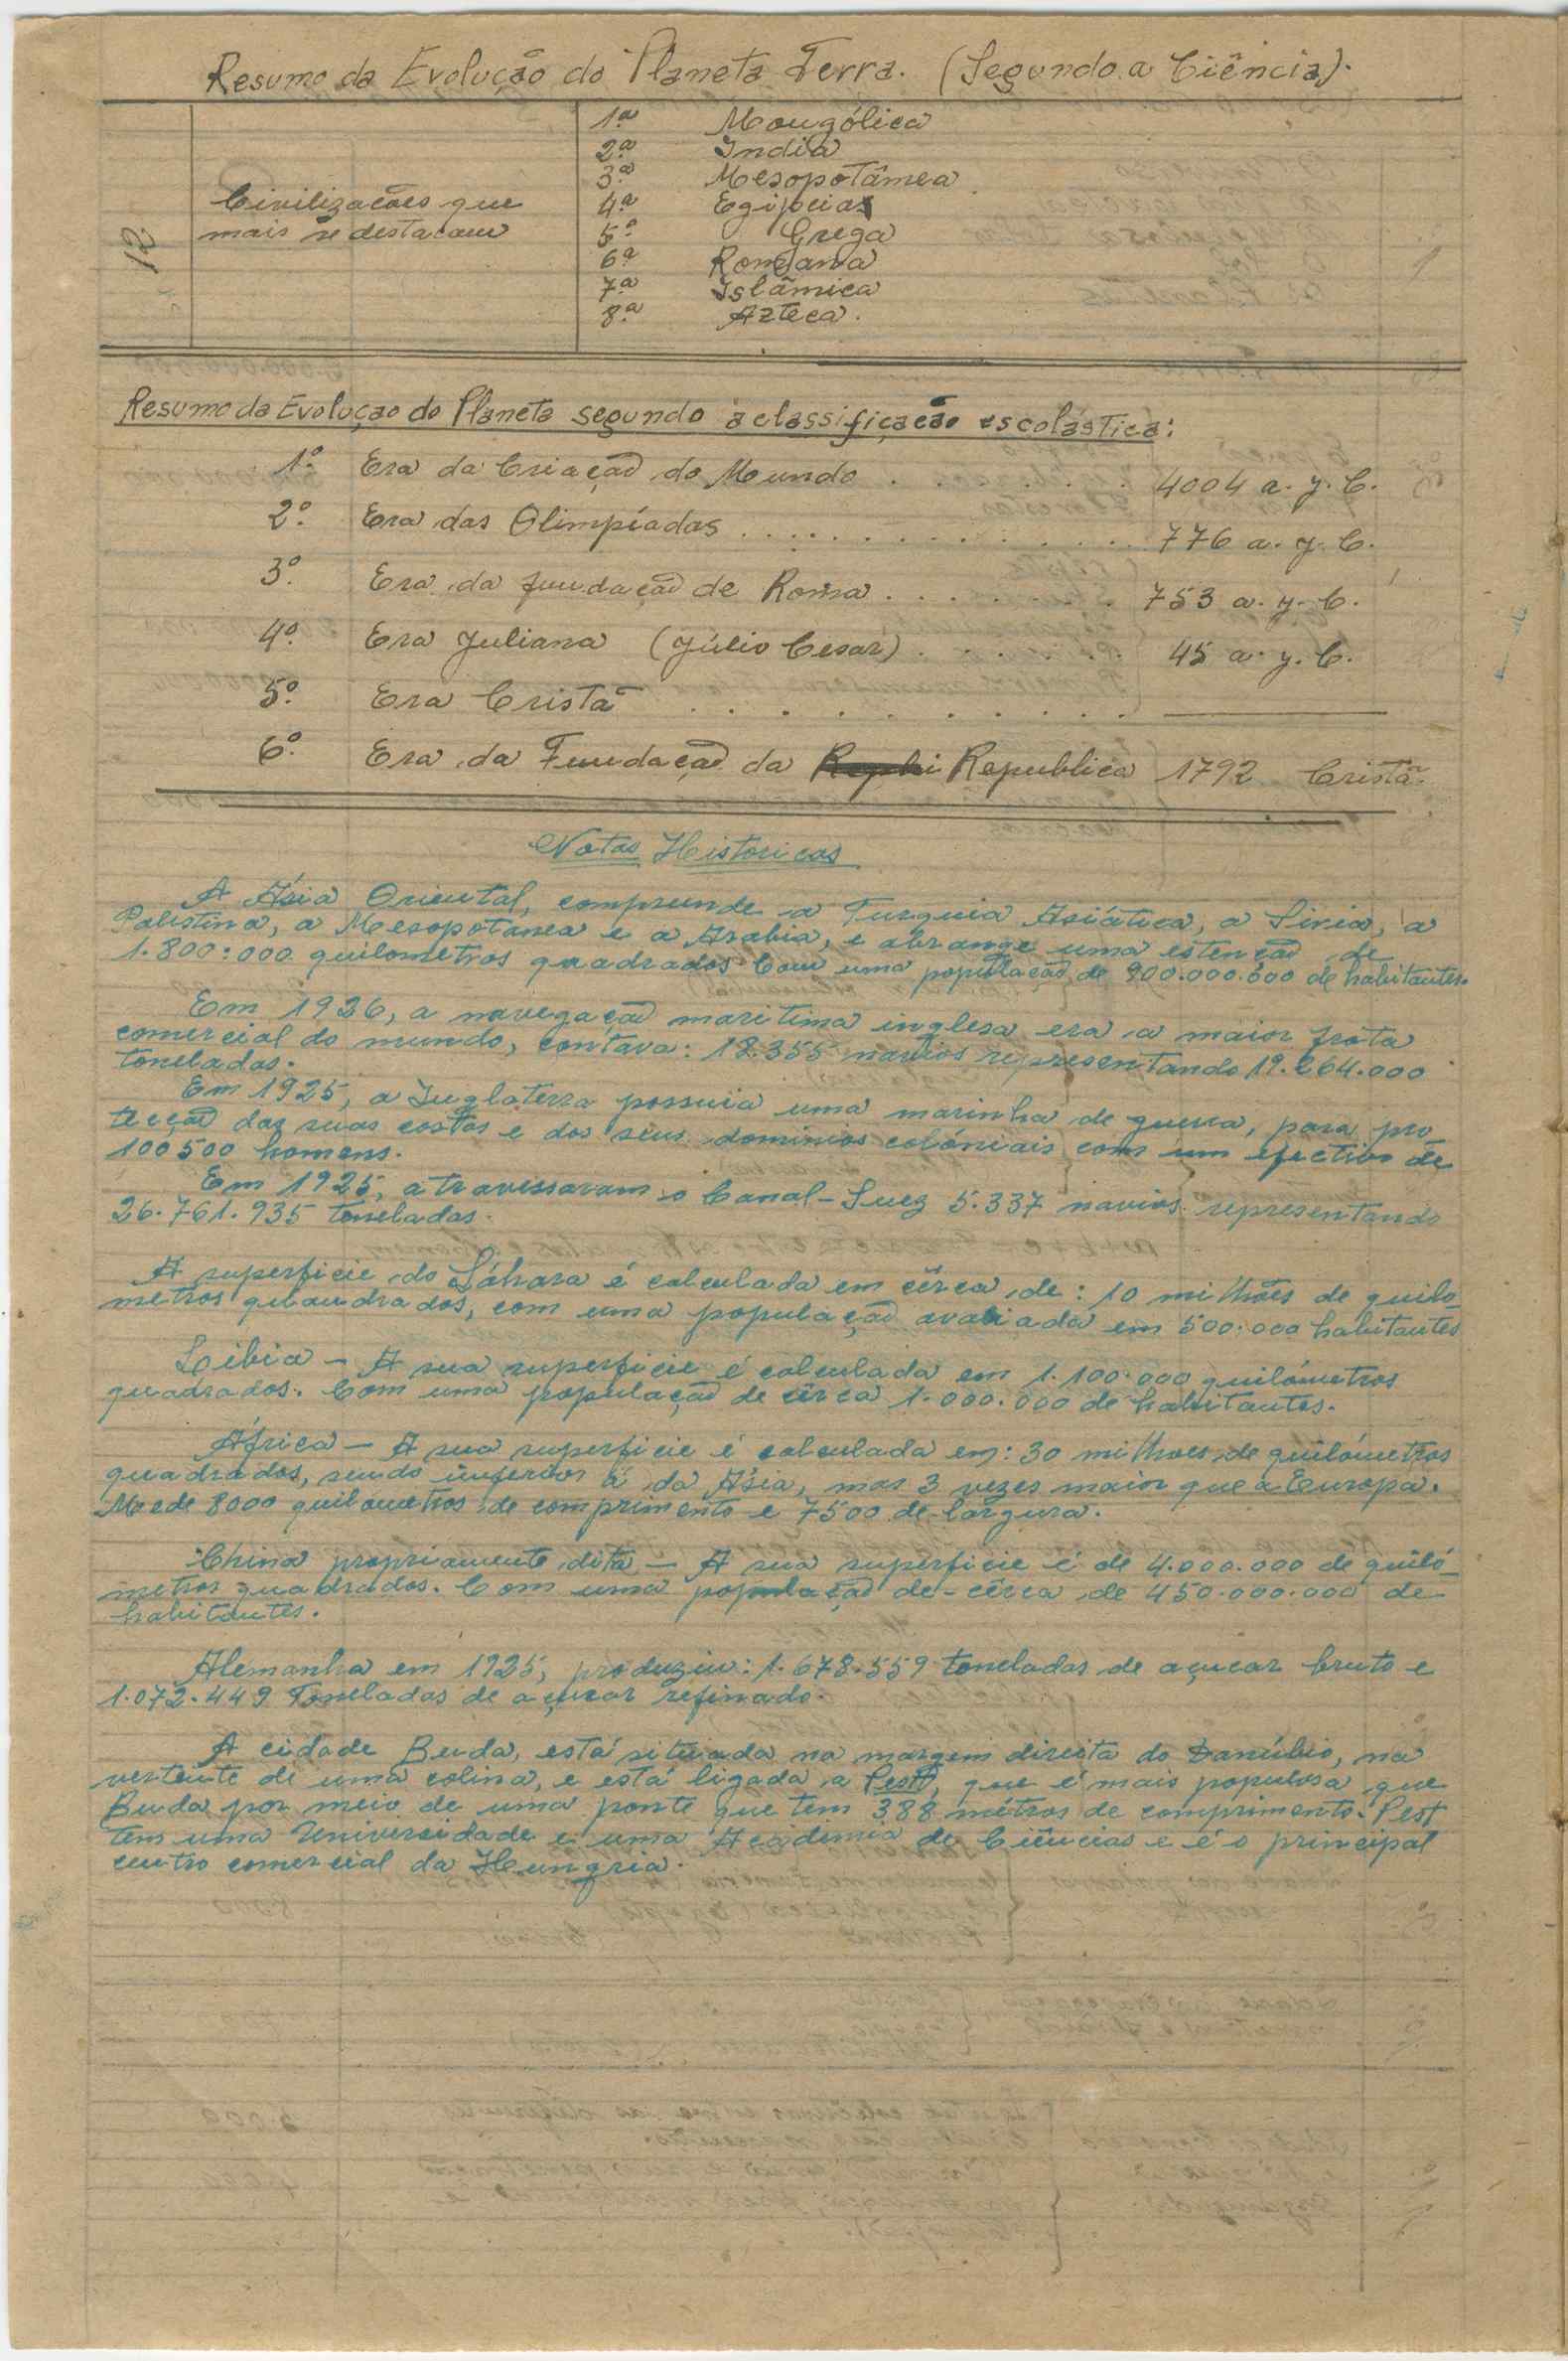 Resumo da Evolução do Planeta Terra. (Segundo a Ciência).
12 Civilizacões que mais se destacam
1ª Mougólica
2ª India
3ª Mesopotâmea
4ª Egipcias
5ª Grega
6ª Romana
7ª Islâmica
8ª Azteca.
Resumo da Evolução do Planeta segundo a classificação escolástica:
1º. Era da Criação do Mundo . . . . . . 4004 a. J. C.
2º. Era das Olimpíadas . . . . . . . . . . . . . 776 a. J. C.
3º. Era da fundação de Roma . . . . . . . . 753 a. J. C.
4º. Era Juliana (Júlio Cesar) . . . . . . 45 a. J. C.
5º. Era Cristã . . . . . . . . . .
6º. Era da Fundação da Republica 1792 Cristã.
Notas Historicas
A Ásia Oriental, comprende a Turquia Asiática, a Siria, a
Palestina, a Mesopotanea e a Arabia, e abrange uma estenção de
1.800:000 quilometros quadrados Com uma população de 900.000.000 de habitantes.
Em 1926, a navegação maritima inglesa era a maior frota
comercial do mundo, contava: 18.355 navios representando 19.264.000
toneladas.
Em 1925, a Inglaterra possuia uma marinha de guerra, para pro_
tecção das suas costas e dos seus dominios colóniais com um efectivo de
100500 homens.
Em 1925, atravessaram o Canal-Suez 5.337 navios representando
26.761.935 toneladas.
A superficie do Sáhara é calculada em cêrca de: 10 milhões de quilo_
metros quaudrados, com uma população avaliada em 500.000 habitantes
Leibia - A sua superficie é calculada em 1.100.000 quilómetros
quadrados. Com uma população de cêrca 1.000.000 de habitantes.
África - A sua superficie é calculada em: 30 milhoes de quilómetros
quadrados, sendo inferior á da Ásia, mas 3 vezes maior que a Europa.
Mede 8000 quilómetros de comprimento e 7500 de largura.
China propriamente dita - A sua superficie é de 4.000.000 de quiló_
metros quadrados. Com uma população de - cêrca de 450.000.000 de
habitantes.
Alemanha em 1925, produziu: 1.678.559 toneladas de açucar bruto e
1.072.449 Toneladas de açucar refinado.
A cidade Buda, está situada na margem direita do Danúbio, na
vertente de uma colina, e está ligada a Pest, que é mais populosa que
Buda por meio de uma ponte que tem 388 métros de comprimento. Pest
tem uma Universidade e uma Academia de Ciências e é o principal
centro comercial da Hungria.